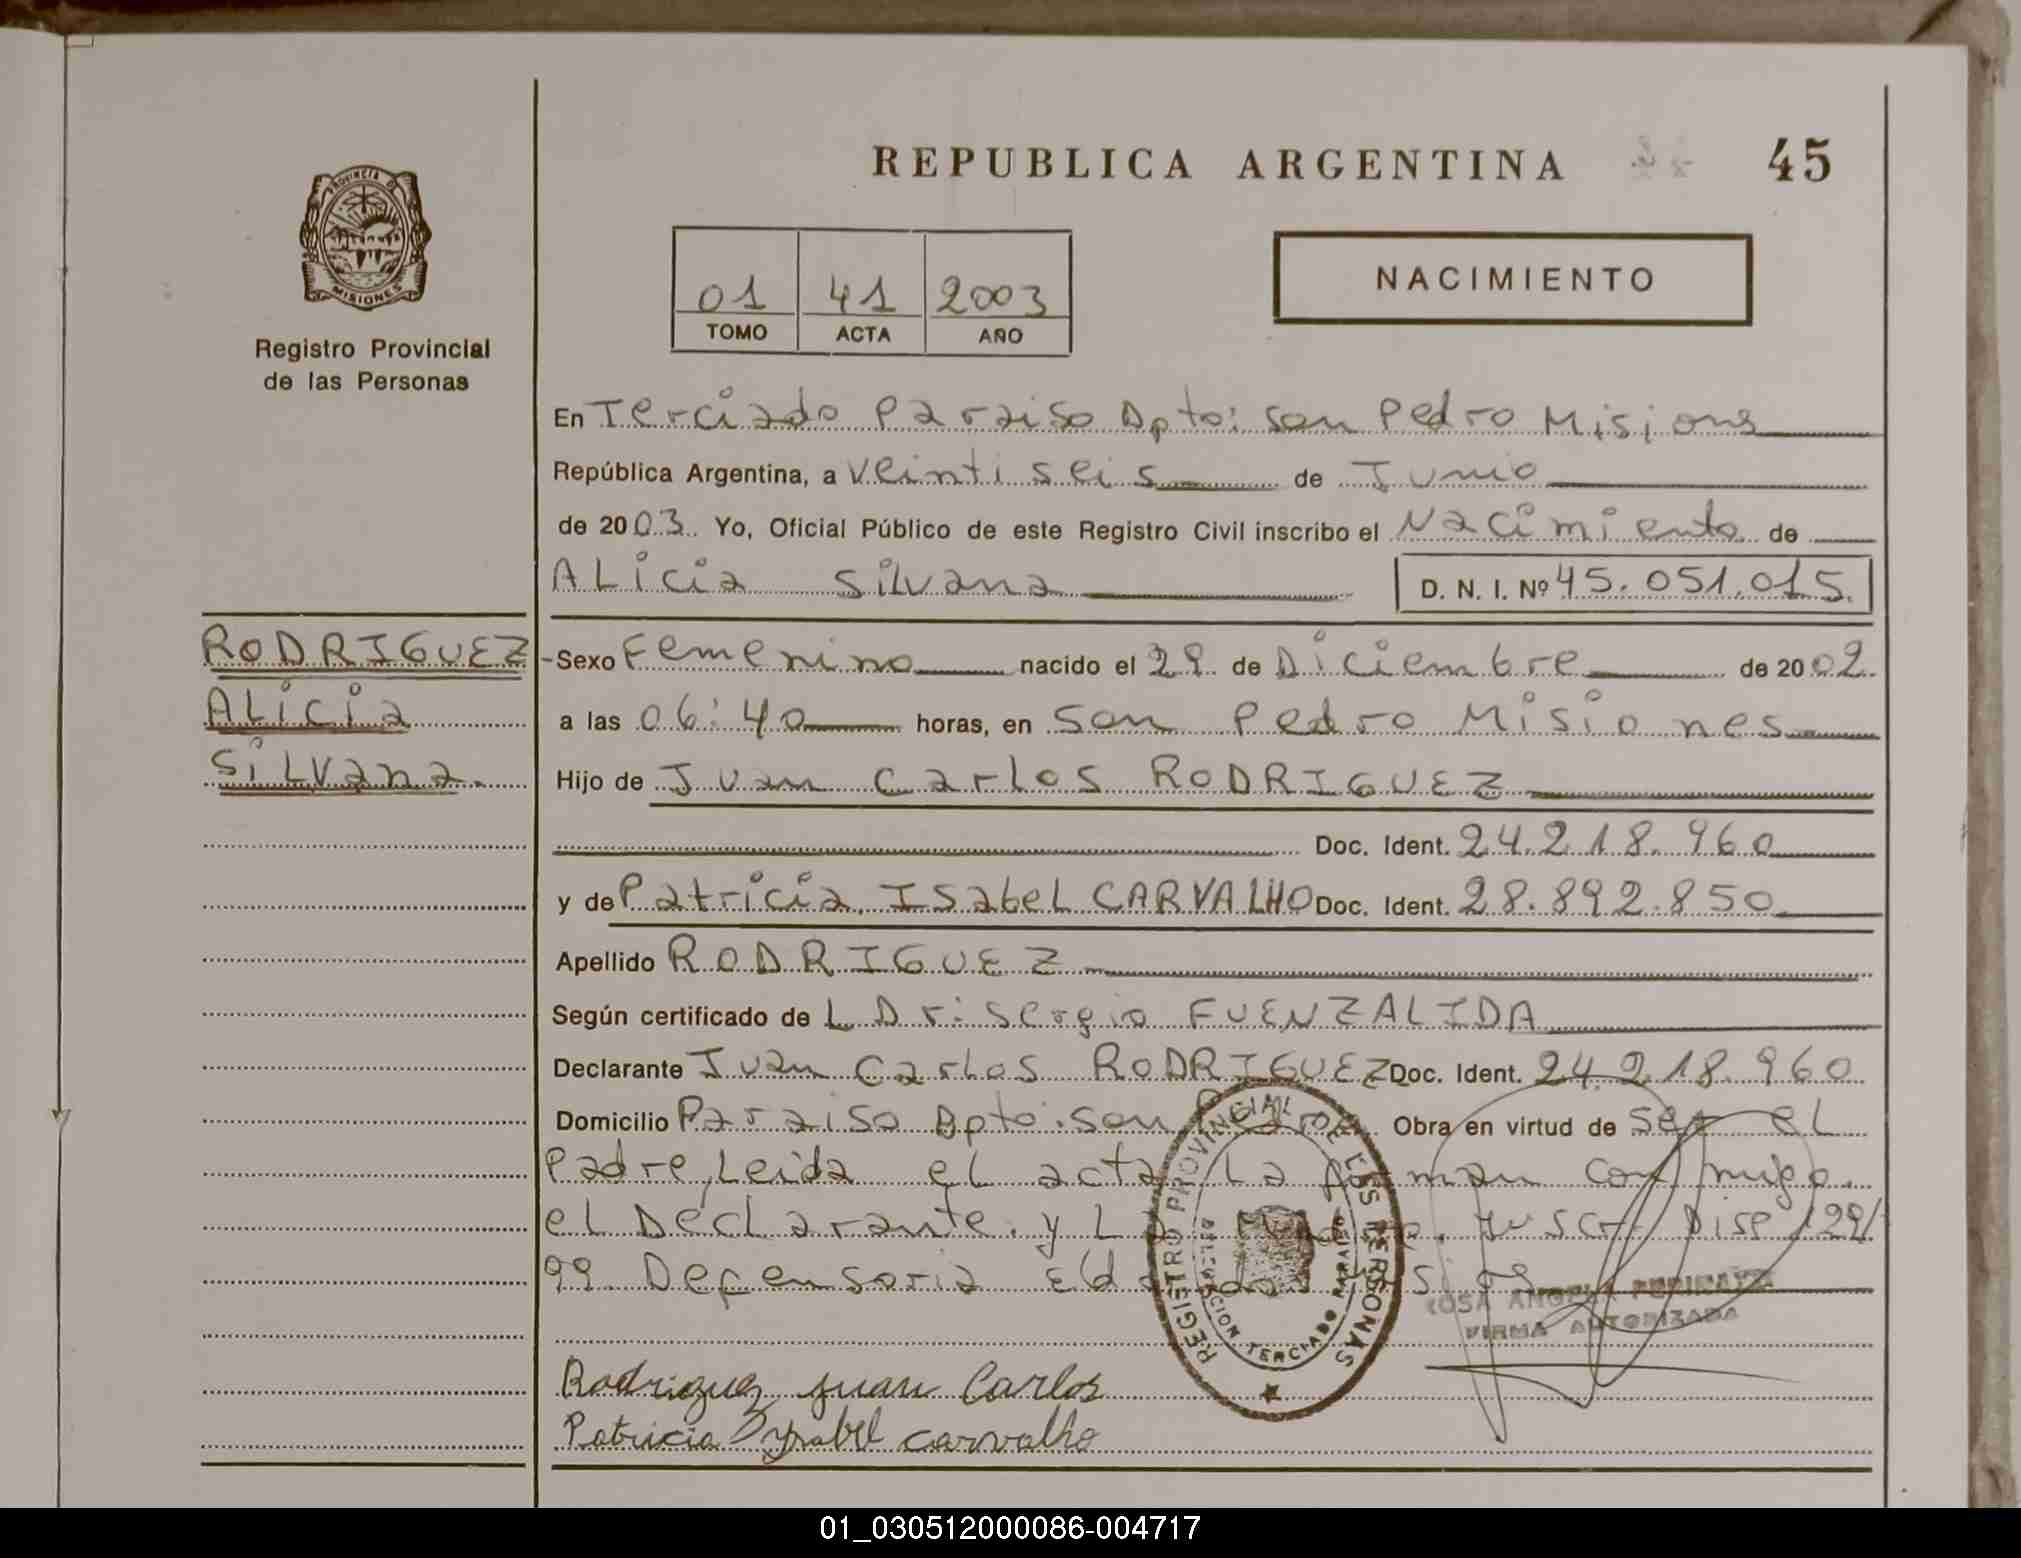 REPUBLICA ARGENTINA 45
PROVINCIA DE
MISIONES
Registro Provincial
de las Personas
01 41 2003
TOMO ACTA AÑO
NACIMIENTO
En Terciado Paraiso Dpto: san Pedro Misions
República Argentina, a veinti seis de Junio
de 2003. Yo, Oficial Público de este Registro Civil inscribo el Nacimiento de
ALicia siLvana D. N. I. Nº 45.051.015.
RODRIGUEZ
ALicia
siLvana.
Sexo Femenino nacido el 29 de Diciembre de 2002.
a las 06:40 horas, en san Pedro Misiones
Hijo de Juan carLos RODRIGUEZ
Doc. Ident. 24.218.960
y de Patricia IsabeL CARVALHO Doc. Ident. 28.892.850
Apellido RODRIGUEZ
Según certificado de L Dr: sergio FUENZALIDA
Declarante Juan carLos RODRIGUEZ Doc. Ident. 24.218.960
Domicilio Paraiso Dpto: san Pedro Obra en virtud de ser eL
Padre, Leida eL acta La conmigo.
eL DecLarante. y La Disp 129/
99 Defensoria
REGISTRO PROVINCIAL DE LAS PERSONAS
DELEGACION TERCIADO PARAISO
ROSA ANGELA
FIRMA AUTORIZADA
Rodriguez juan Carlos
Patricia Ysabel carvalho
01_030512000086-004717